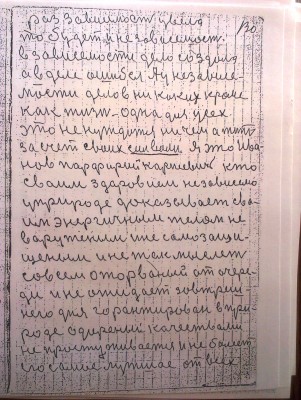 раз зависимость ушла 130
то будет и независемост.
в зависемости дело создал
а в деле ошибся. А у независе-
мости делов ни каких кроме
как жизн одна для усех
это не нуждатся ничем а
за счет своих сил. Я это Ива-
нов Парфирий Карнеевич кто
своим здаровием независемо
у природе доказывает сва-
им энергичным телом не
варуженим и не самозащи-
щеным и не так мыслет
совсем оторваный от очере-
ди и не ожидает завтриш-
него дня горантирован в при-
роде одуреный качествами
не простуживатся и не болет
это самое лучшае от всех